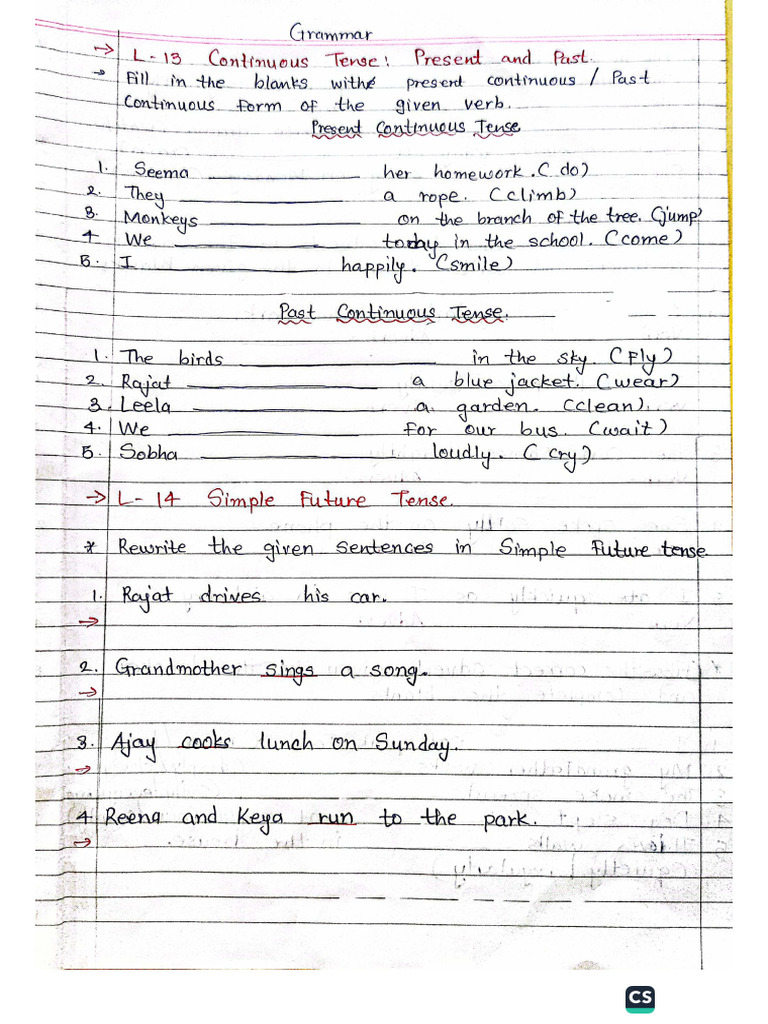 Grammar
→ L-13 Continuous Tense: Present and Past.
→ Fill in the blanks with present continuous / Past
Continuous form of the given verb.
Present Continuous Tense
1. Seema ____________ her homework. (do)
2. They ____________ a rope. (climb)
3. Monkeys ____________ on the branch of the tree. (jump)
4. We ____________ today in the school. (come)
5. I ____________ happily. (smile)
Past Continuous Tense.
1. The birds ____________ in the sky. (Fly)
2. Rajat ____________ a blue jacket. (wear)
3. Leela ____________ a garden. (clean).
4. We ____________ for our bus. (wait)
5. Sobha ____________ loudly. (cry)
→ L-14 Simple Future Tense.
* Rewrite the given sentences in Simple Future tense
1. Rajat drives his car.
→
2. Grandmother sings a song.
→
3. Ajay cooks lunch on Sunday.
→
4. Reena and Keya run to the park.
→
CS